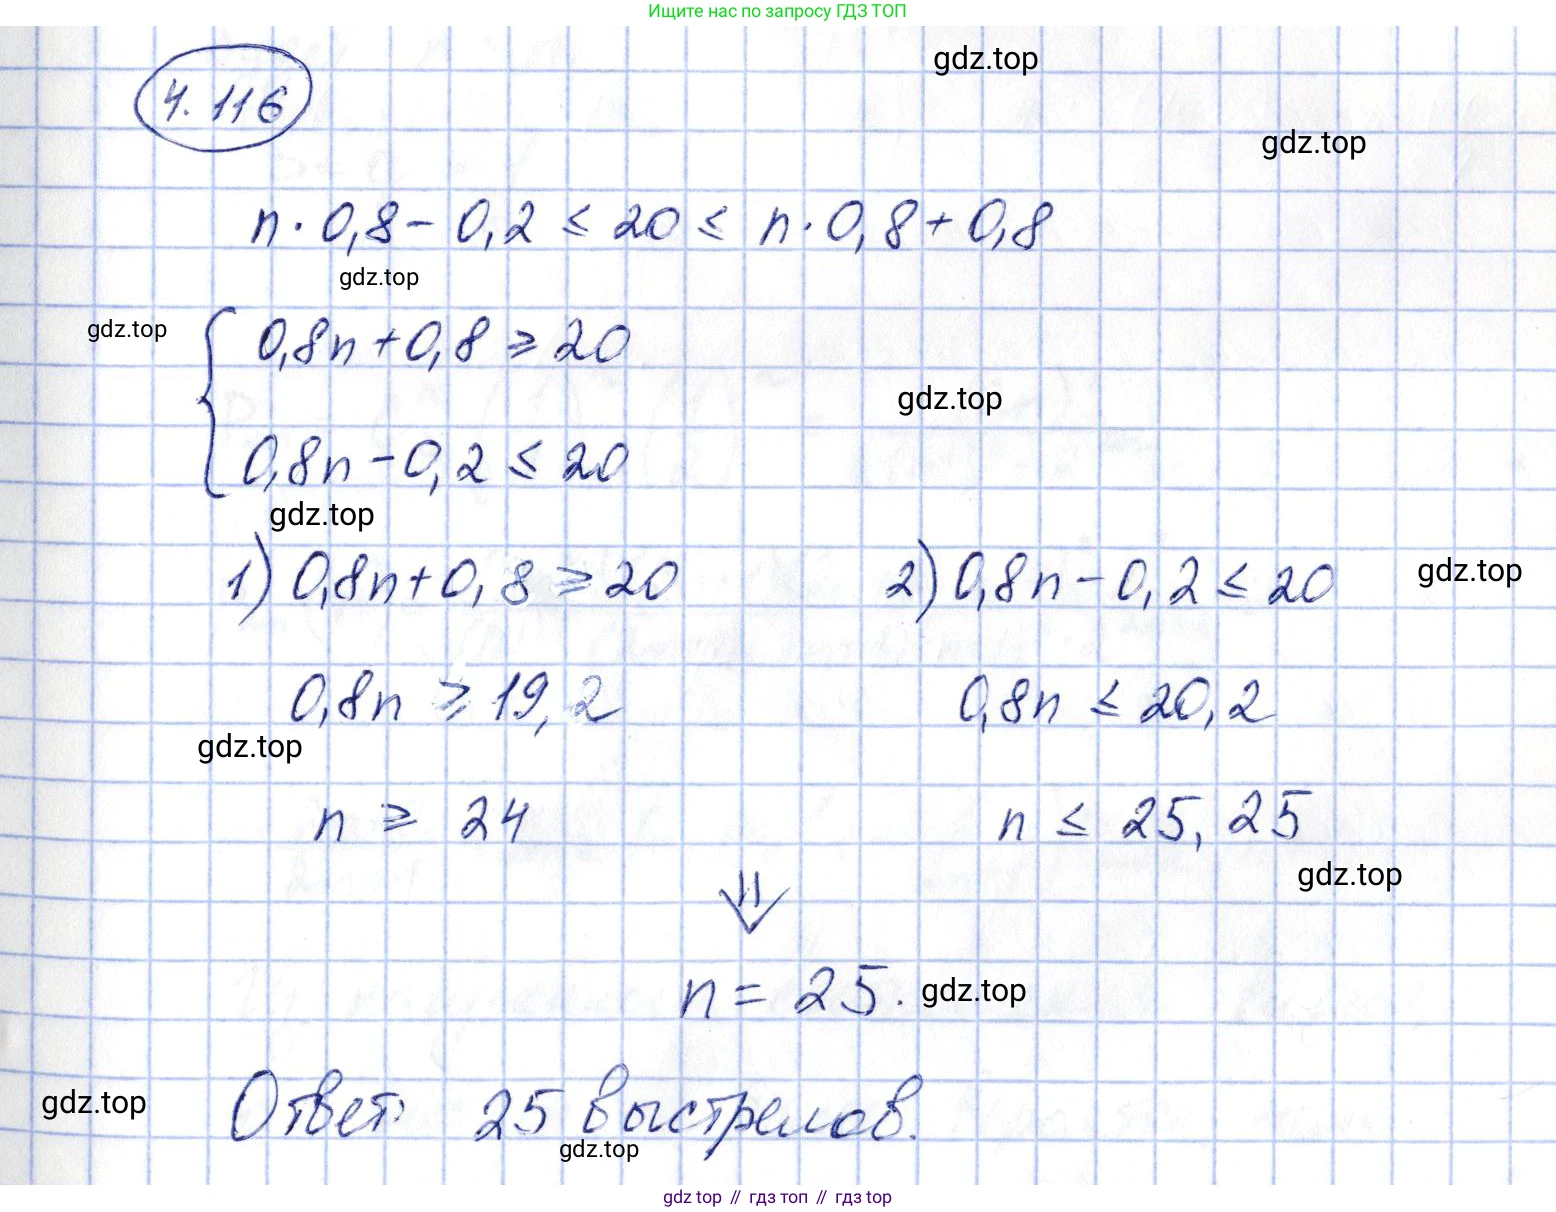 Ищите нас по запросу ГДЗ ТОП
gdz.top
4.116
gdz.top
n · 0,8 - 0,2 ≤ 20 ≤ n · 0,8 + 0,8
gdz.top
gdz.top
0,8n + 0,8 ≥ 20
gdz.top
0,8n - 0,2 ≤ 20
gdz.top
1) 0,8n + 0,8 ≥ 20 2) 0,8n - 0,2 ≤ 20 gdz.top
0,8n ≥ 19,2 0,8n ≤ 20,2
gdz.top
n ≥ 24 n ≤ 25,25
gdz.top
⇓
n = 25. gdz.top
gdz.top
Ответ: 25 выстрелов.
gdz.top
gdz top // гдз топ // гдз top